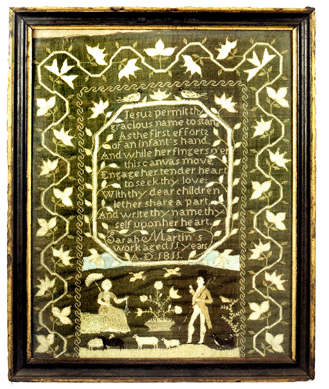 Jesus permit thy
gracious name to stand
As the first effortz
of an infant's hand
And while her fingers o'er
this canvas move
Engage her tender heart
to seek thy love
With thy dear children
let her share a part
And write thy name thy
self upon her heart
Sarah Martin's
work aged 11 years
A.D. 1811